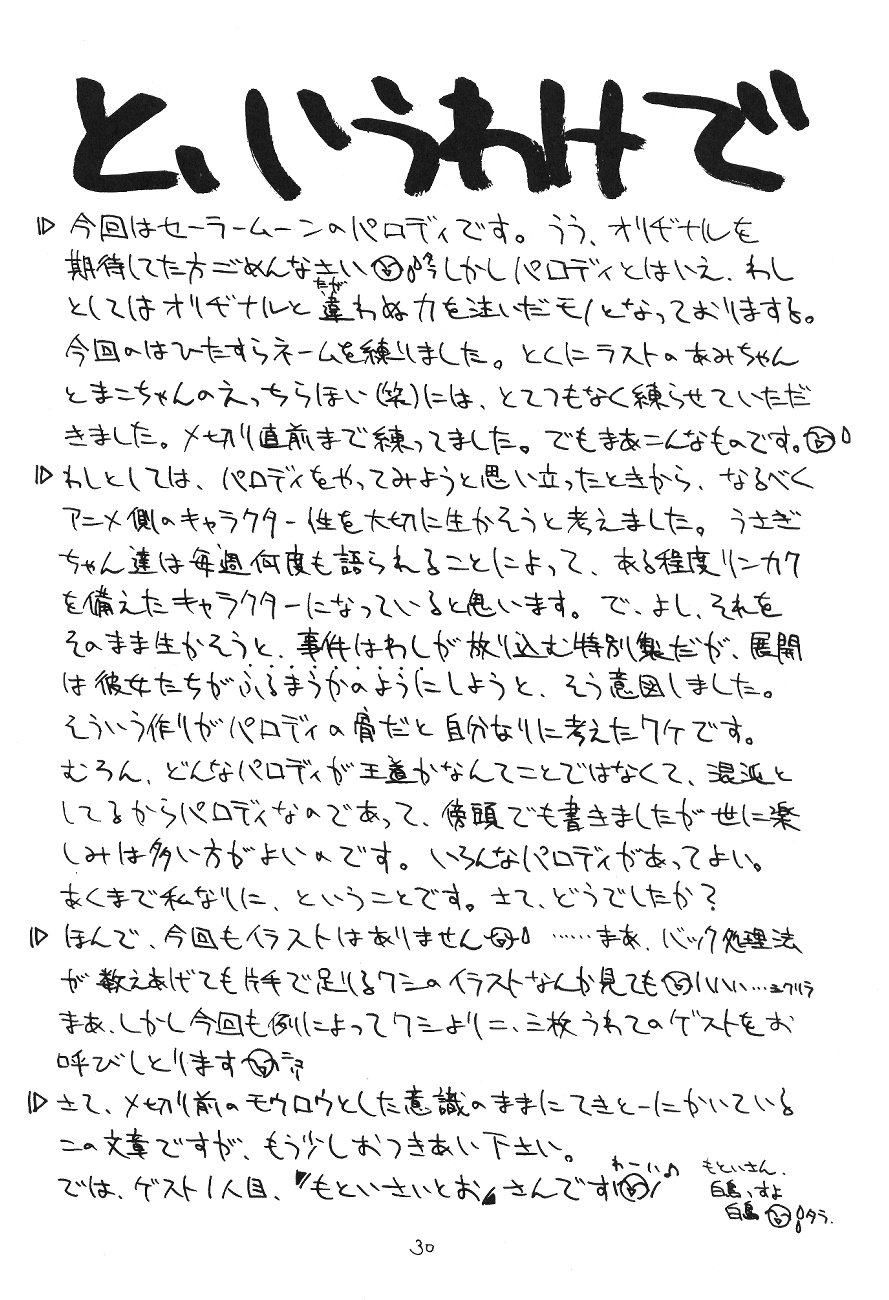 と、いうわけで
今回はセーラームーンのパロディです。うう、オリヂナルを
期待してた方ごめんなさい しかしパロディとはいえ、わし
としてはオリヂナルと違わぬ力を注いだモノとなっておりまする。
たが
今回のはひたすらネームを練りました。とくにラストのあみちゃん
とまこちゃんのえっちらほい(笑)には、とてつもなく練らせていただ
きました。〆切り直前まで練ってました。でもまあこんなものです。
わしとしては、パロディをやってみようと思い立ったときから、なるべく
アニメ側のキャラクター性を大切に生かそうと考えました。うさぎ
ちゃん達は毎週何度も語られることによって、ある程度リンカク
を備えたキャラクターになっていると思います。で、よし、それを
そのまま生かそうと、事件はわしが放り込む特別製だが、展開
は彼女たちがふるまうかのようにしようと、そう意図しました。
そういう作りがパロディの骨だと自分なりに考えたワケです。
むろん、どんなパロディが王道かなんてことではなくて、混沌と
してるからパロディなのであって、傍頭でも書きましたが世に楽
しみは多い方がよいのです。いろんなパロディがあってよい。
あくまで私なりに、ということです。さて、どうでしたか?
ほんで、今回もイラストはありません ……まあ、バック処理法
が数えあげても片手で足りるワシのイラストなんか見ても いいい…
まあ、しかし今回も例によってワシより二、三枚うわてのゲストをお
呼びしとります
さて、〆切り前のモウロウとした意識のままにてきとーにかいている
この文章ですが、もう少しおつきあい下さい。
では、ゲスト1人目、〝もといさいとお〟さんです!
わーい♪
もといさん、
白鳥っすよ
白鳥 タラ.
30